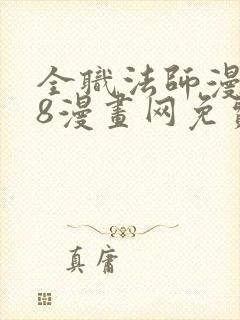 全職法師漫
8漫畫网免費
真庸